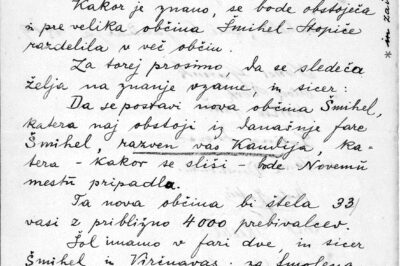 Kakor je znano, se bode obstoječa
i pre velika občina Šmihel-Stopiče
razdelila v več občin.
Za torej prosimo, da se sledeča
želja na znanje vzame, in sicer:
Da se postavi nova občina Šmihel,
katera naj obstoji iz današnje fare
Šmihel, razven vas Kandija, ka-
tera - kakor se sliši - bode Novemu
mestu pripadla.
Ta nova občina bi štela 33
vasi z približno 4000 prebivalcev.
Šol imamo v fari dve, in sicer
Šmihel in Virčnavas; za Smolena
* in zai